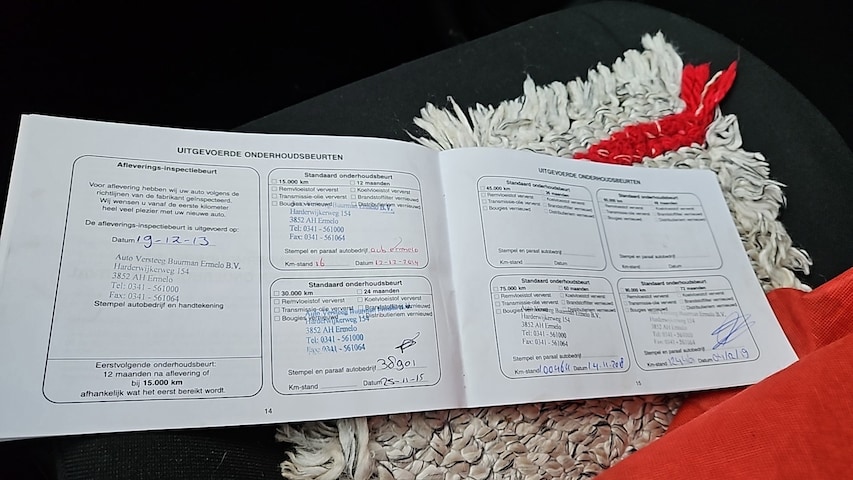 UITGEVOERDE ONDERHOUDSBEURTEN
Afleverings-inspectiebeurt
Voor aflevering hebben wij uw auto volgens de
richtlijnen van de fabrikant geïnspecteerd.
Wij wensen u vanaf de eerste kilometer
heel veel plezier met uw nieuwe auto.
De afleverings-inspectiebeurt is uitgevoerd op:
Datum 19-12-13
Auto Versteeg Buurman Ermelo B.V.
Harderwijkerweg 154
3852 AH Ermelo
Tel: 0341 - 561000
Fax: 0341 - 561064
Stempel autobedrijf en handtekening
Eerstvolgende onderhoudsbeurt:
12 maanden na aflevering of
bij 15.000 km
afhankelijk wat het eerst bereikt wordt.
Standaard onderhoudsbeurt
15.000 km 12 maanden
Remvloeistof ververst Koelvloeistof ververst
Transmissie-olie ververst Brandstoffilter vernieuwd
Bougies vernieuwd Distributieriem vernieuwd
Buurman Ermelo B.V.
Harderwijkerweg 154
3852 AH Ermelo
Tel: 0341 - 561000
Fax: 0341 - 561064
Stempel en paraaf autobedrijf avb ermelo
Km-stand 16 Datum 12-12-2014
Standaard onderhoudsbeurt
30.000 km 24 maanden
Remvloeistof ververst Koelvloeistof ververst
Transmissie-olie ververst Brandstoffilter vernieuwd
Bougies vernieuwd Distributieriem vernieuwd
Harderwijkerweg 154
3852 AH Ermelo
Tel: 0341 - 561000
Fax: 0341 - 561064
Stempel en paraaf autobedrijf 38901
Km-stand Datum 25-11-15
14
UITGEVOERDE ONDERHOUDSBEURTEN
Standaard onderhoudsbeurt
45.000 km 36 maanden
Remvloeistof ververst Koelvloeistof ververst
Transmissie-olie ververst Brandstoffilter vernieuwd
Bougies vernieuwd Distributieriem vernieuwd
Stempel en paraaf autobedrijf
Km-stand Datum
Standaard onderhoudsbeurt
Stempel en paraaf autobedrijf
Km-stand Datum
Standaard onderhoudsbeurt
75.000 km 60 maanden
Remvloeistof ververst Koelvloeistof ververst
Transmissie-olie ververst Brandstoffilter vernieuwd
Bougies vernieuwd Distributieriem vernieuwd
Harderwijkerweg 154
3852 AH Ermelo
Tel: 0341 - 561000
Fax: 0341 - 561064
Stempel en paraaf autobedrijf
Km-stand Datum 14.11.2018
Standaard onderhoudsbeurt
90.000 km
Harderwijkerweg 154
3852 AH Ermelo
Stempel en paraaf autobedrijf
Km-stand Datum
15